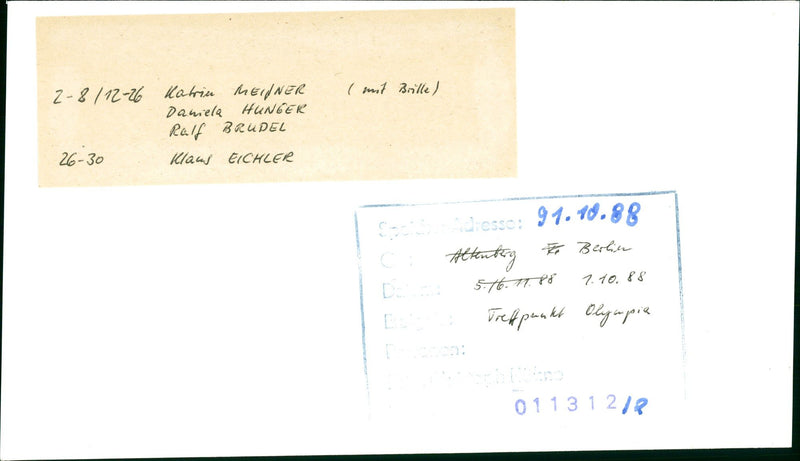 2-8/12-26 Katrin MEIßNER (mit Brille)
Daniela HUNGER
Ralf BRUDEL
26-30 Klaus EICHLER
Speicher-Adresse: 91.10.88
Ort: Altenberg Berlin
Datum: 5./6.11.88 1.10.88
Treffpunkt Olympia
Personen:
011312/2